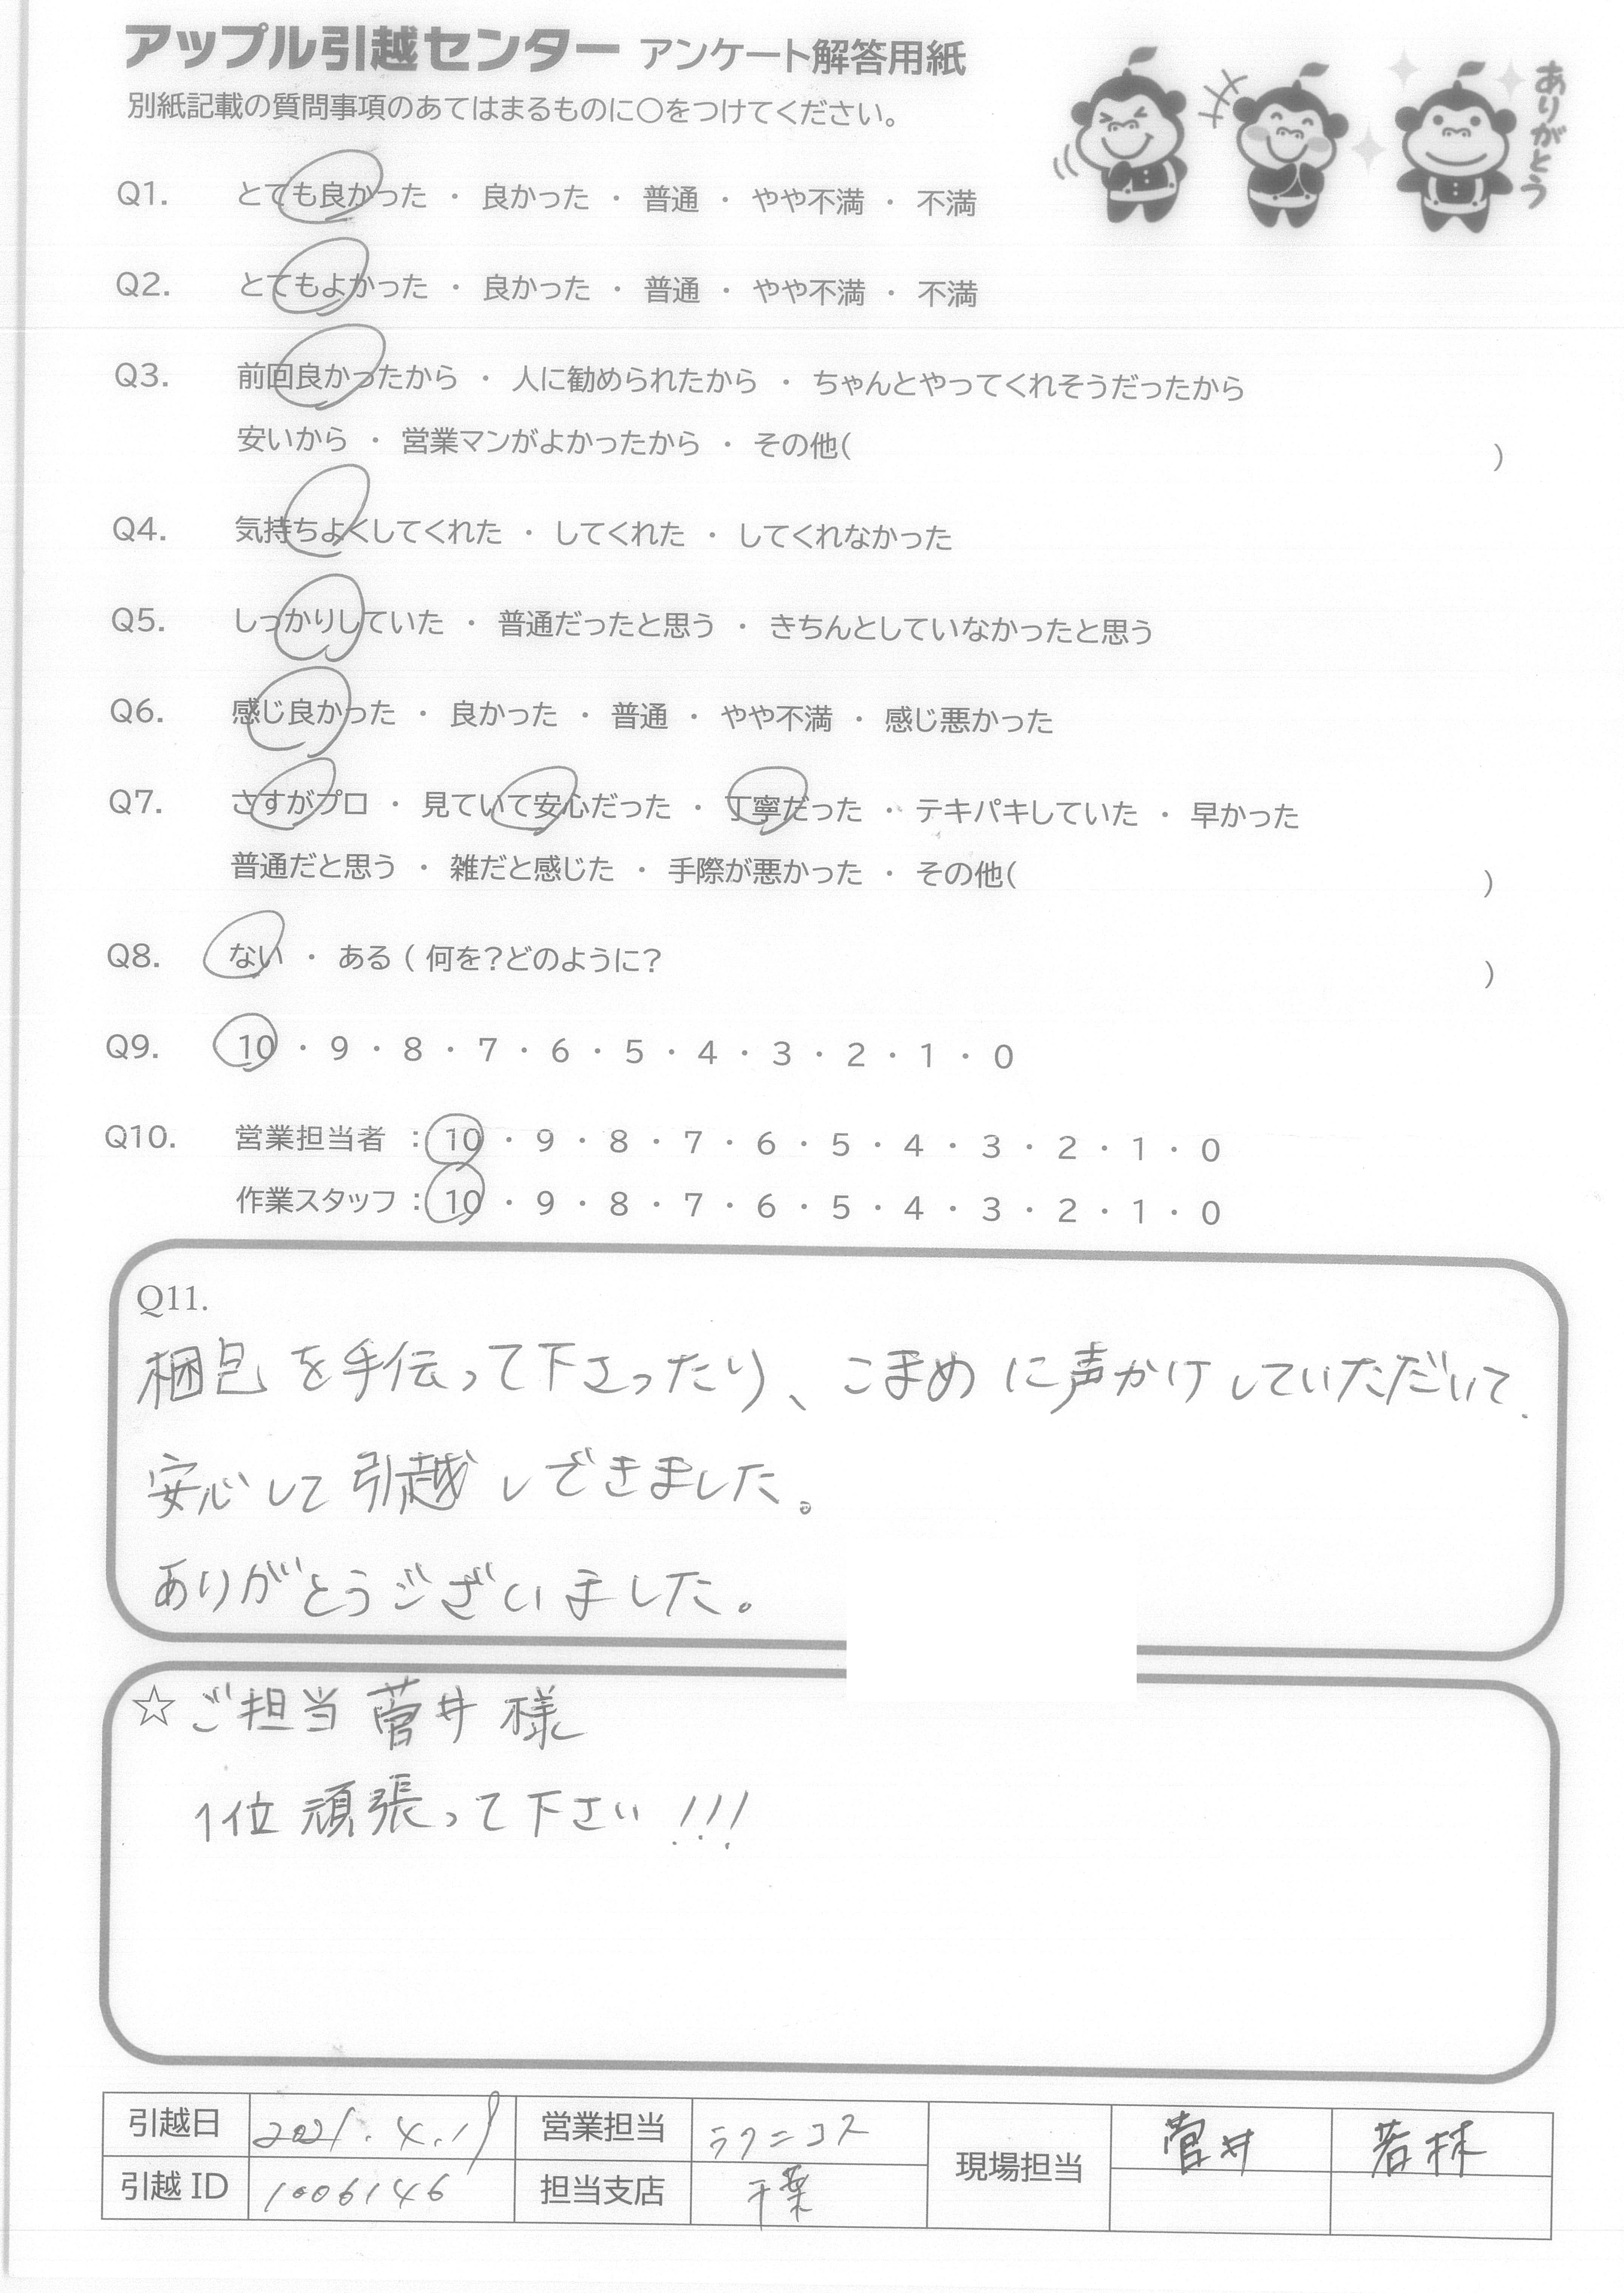 アップル引越センター アンケート解答用紙
ありがとう
別紙記載の質問事項のあてはまるものに○をつけてください。
Q1. とても良かった ・ 良かった ・ 普通 ・ やや不満 ・ 不満
Q2. とてもよかった ・ 良かった ・ 普通 ・ やや不満 ・ 不満
Q3. 前回良かったから ・ 人に勧められたから ・ ちゃんとやってくれそうだったから
安いから ・ 営業マンがよかったから ・ その他( )
Q4. 気持ちよくしてくれた ・ してくれた ・ してくれなかった
Q5. しっかりしていた ・ 普通だったと思う ・ きちんとしていなかったと思う
Q6. 感じ良かった ・ 良かった ・ 普通 ・ やや不満 ・ 感じ悪かった
Q7. さすがプロ ・ 見ていて安心だった ・ 丁寧だった ・ テキパキしていた ・ 早かった
普通だと思う ・ 雑だと感じた ・ 手際が悪かった ・ その他( )
Q8. ない ・ ある ( 何を？どのように？ )
Q9. 10 ・ 9 ・ 8 ・ 7 ・ 6 ・ 5 ・ 4 ・ 3 ・ 2 ・ 1 ・ 0
Q10. 営業担当者 : 10 ・ 9 ・ 8 ・ 7 ・ 6 ・ 5 ・ 4 ・ 3 ・ 2 ・ 1 ・ 0
作業スタッフ : 10 ・ 9 ・ 8 ・ 7 ・ 6 ・ 5 ・ 4 ・ 3 ・ 2 ・ 1 ・ 0
Q11.
梱包を手伝って下さったり、こまめに声かけしていただいて、
安心して引越しできました。
ありがとうございました。
☆ご担当 菅井様
1位頑張って下さい!!!
引越日 2021.4.19 営業担当 ラクニコス 現場担当 菅井 若林
引越ID 1006146 担当支店 千葉